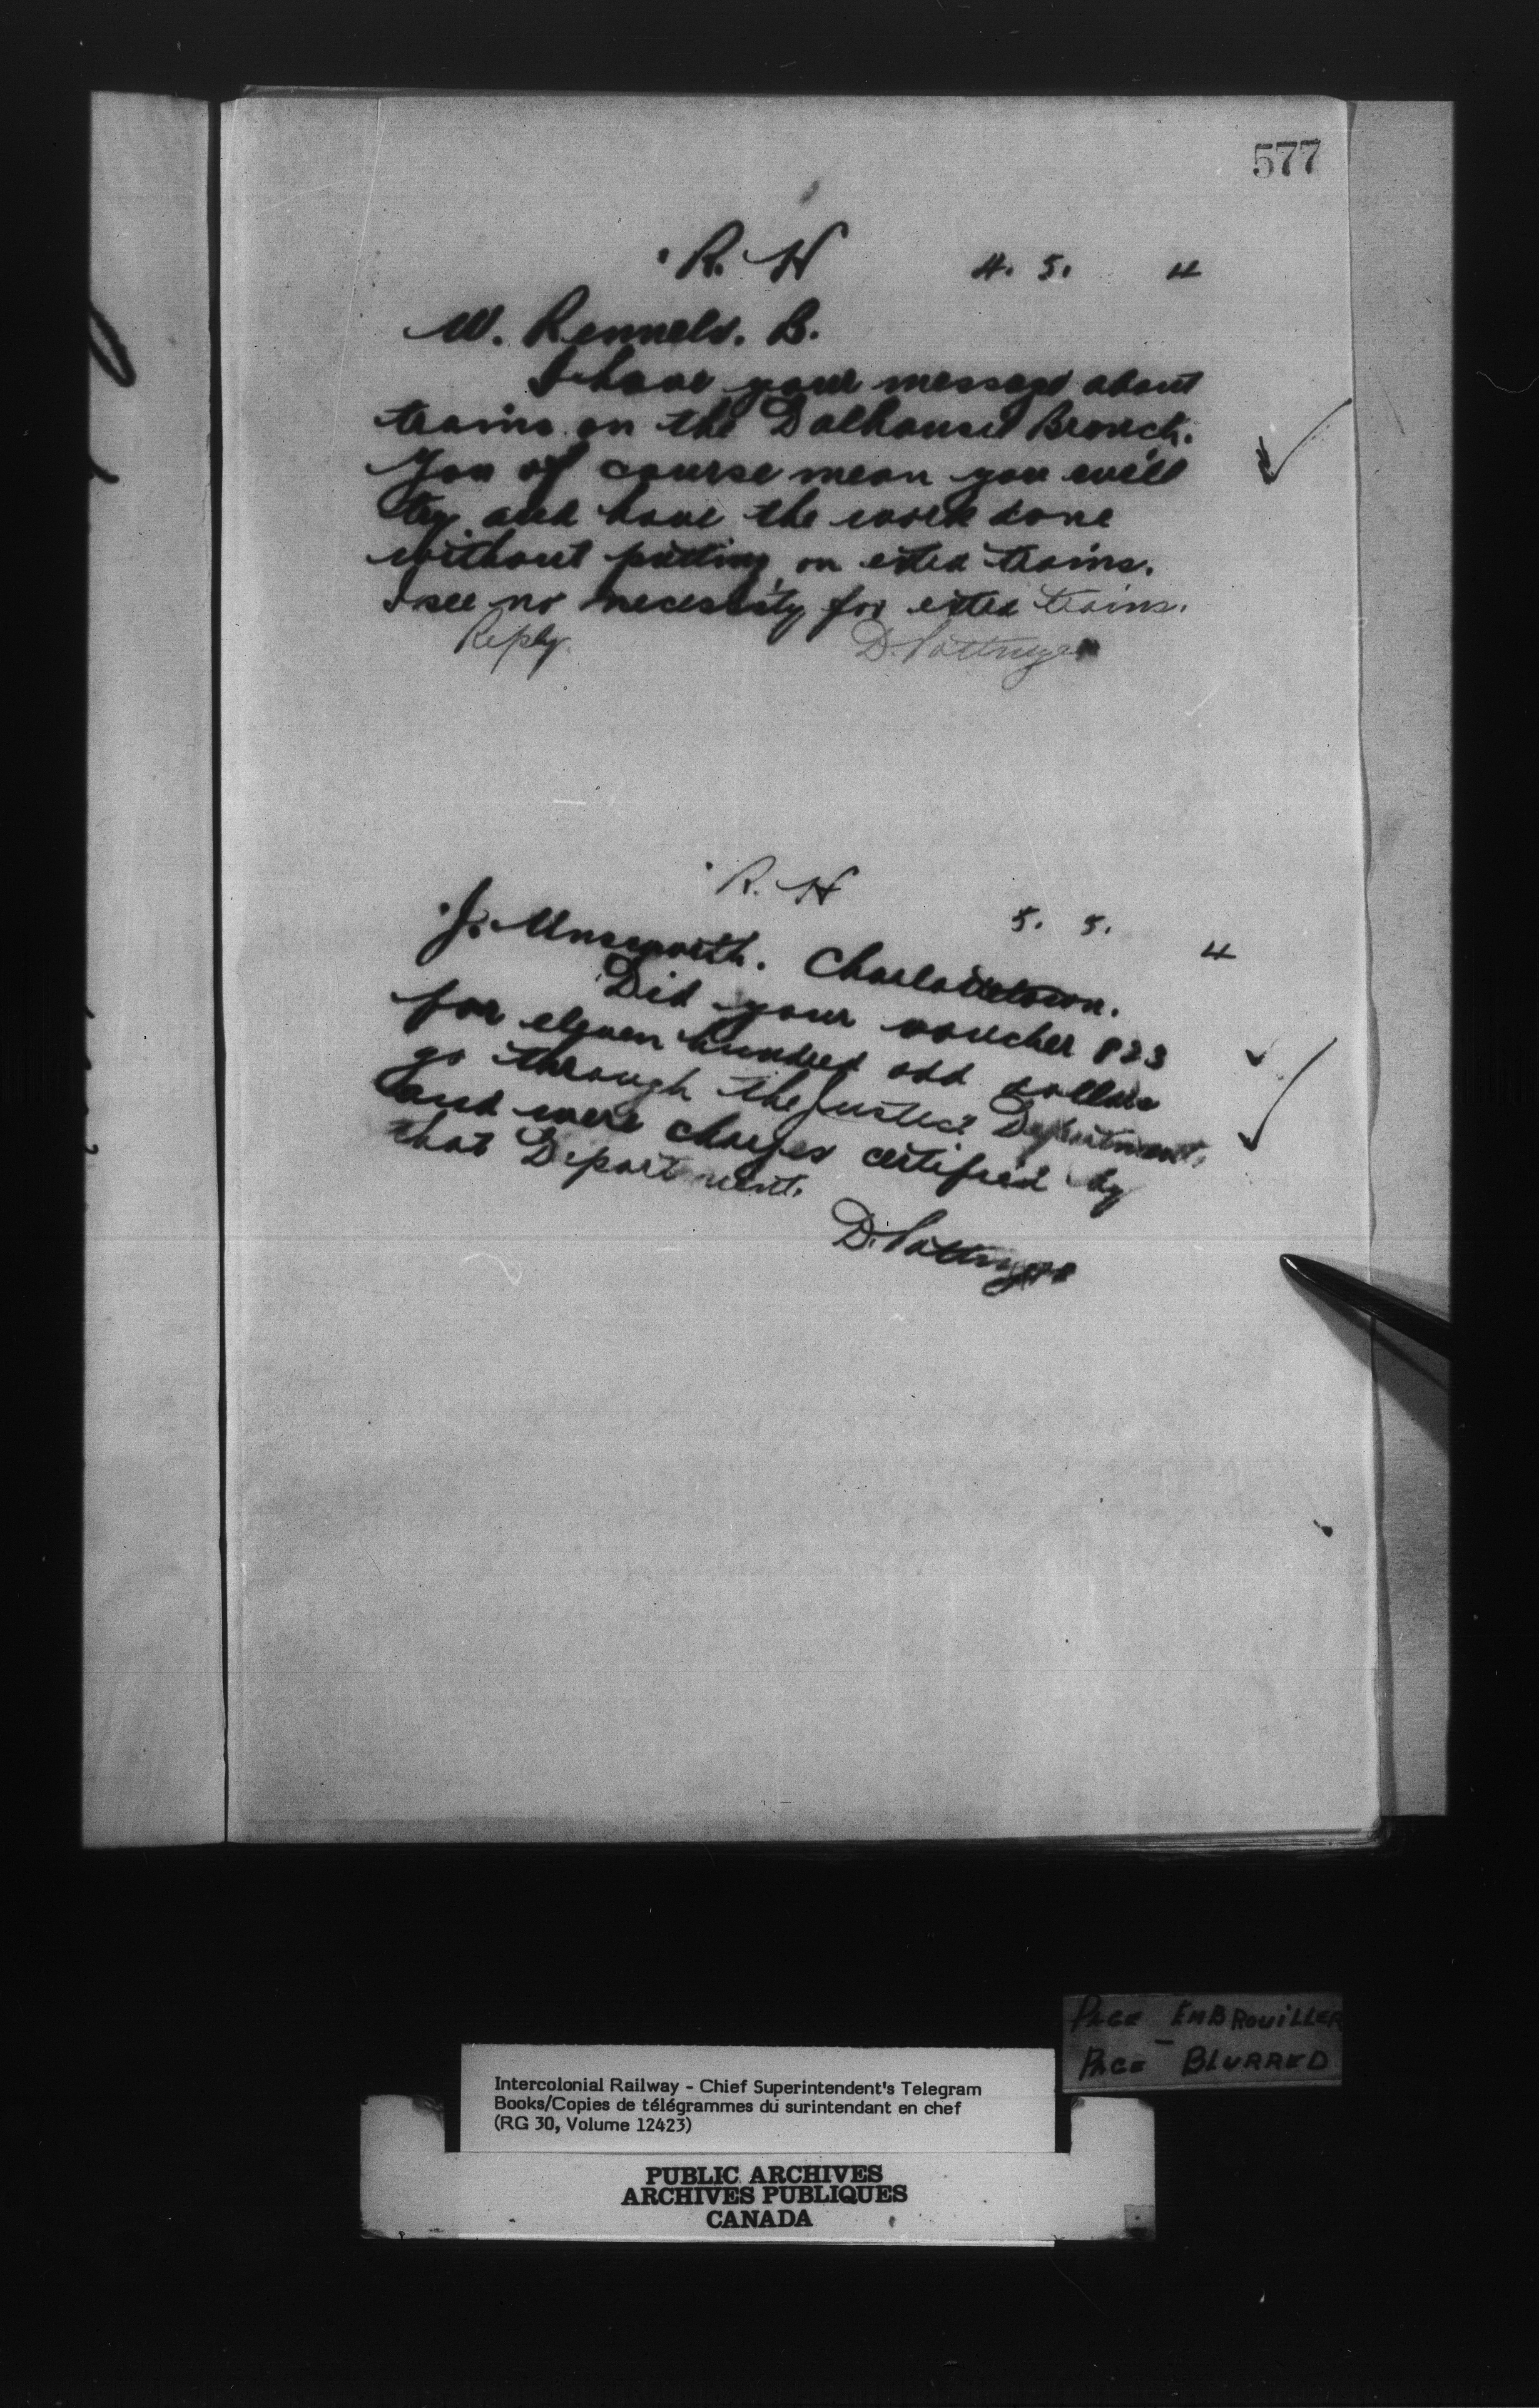 577
R. H 4. 5. 4
W. Rennels. B.
I have your message about
trains on the Dalhousie Branch.
You of course mean you will
try and have the work done
without putting on extra trains.
I see no necessity for extra trains.
Reply. D. Pottinger
R. H
5. 5. 4
J. Unsworth. Charlottetown.
Did your voucher 823
for eleven hundred odd dollars
go through the Justice Department,
and were charges certified by
that Department.
D. Pottinger
PAGE EMBROUILLER
PAGE BLURRED
Intercolonial Railway - Chief Superintendent's Telegram
Books/Copies de télégrammes du surintendant en chef
(RG 30, Volume 12423)
PUBLIC ARCHIVES
ARCHIVES PUBLIQUES
CANADA